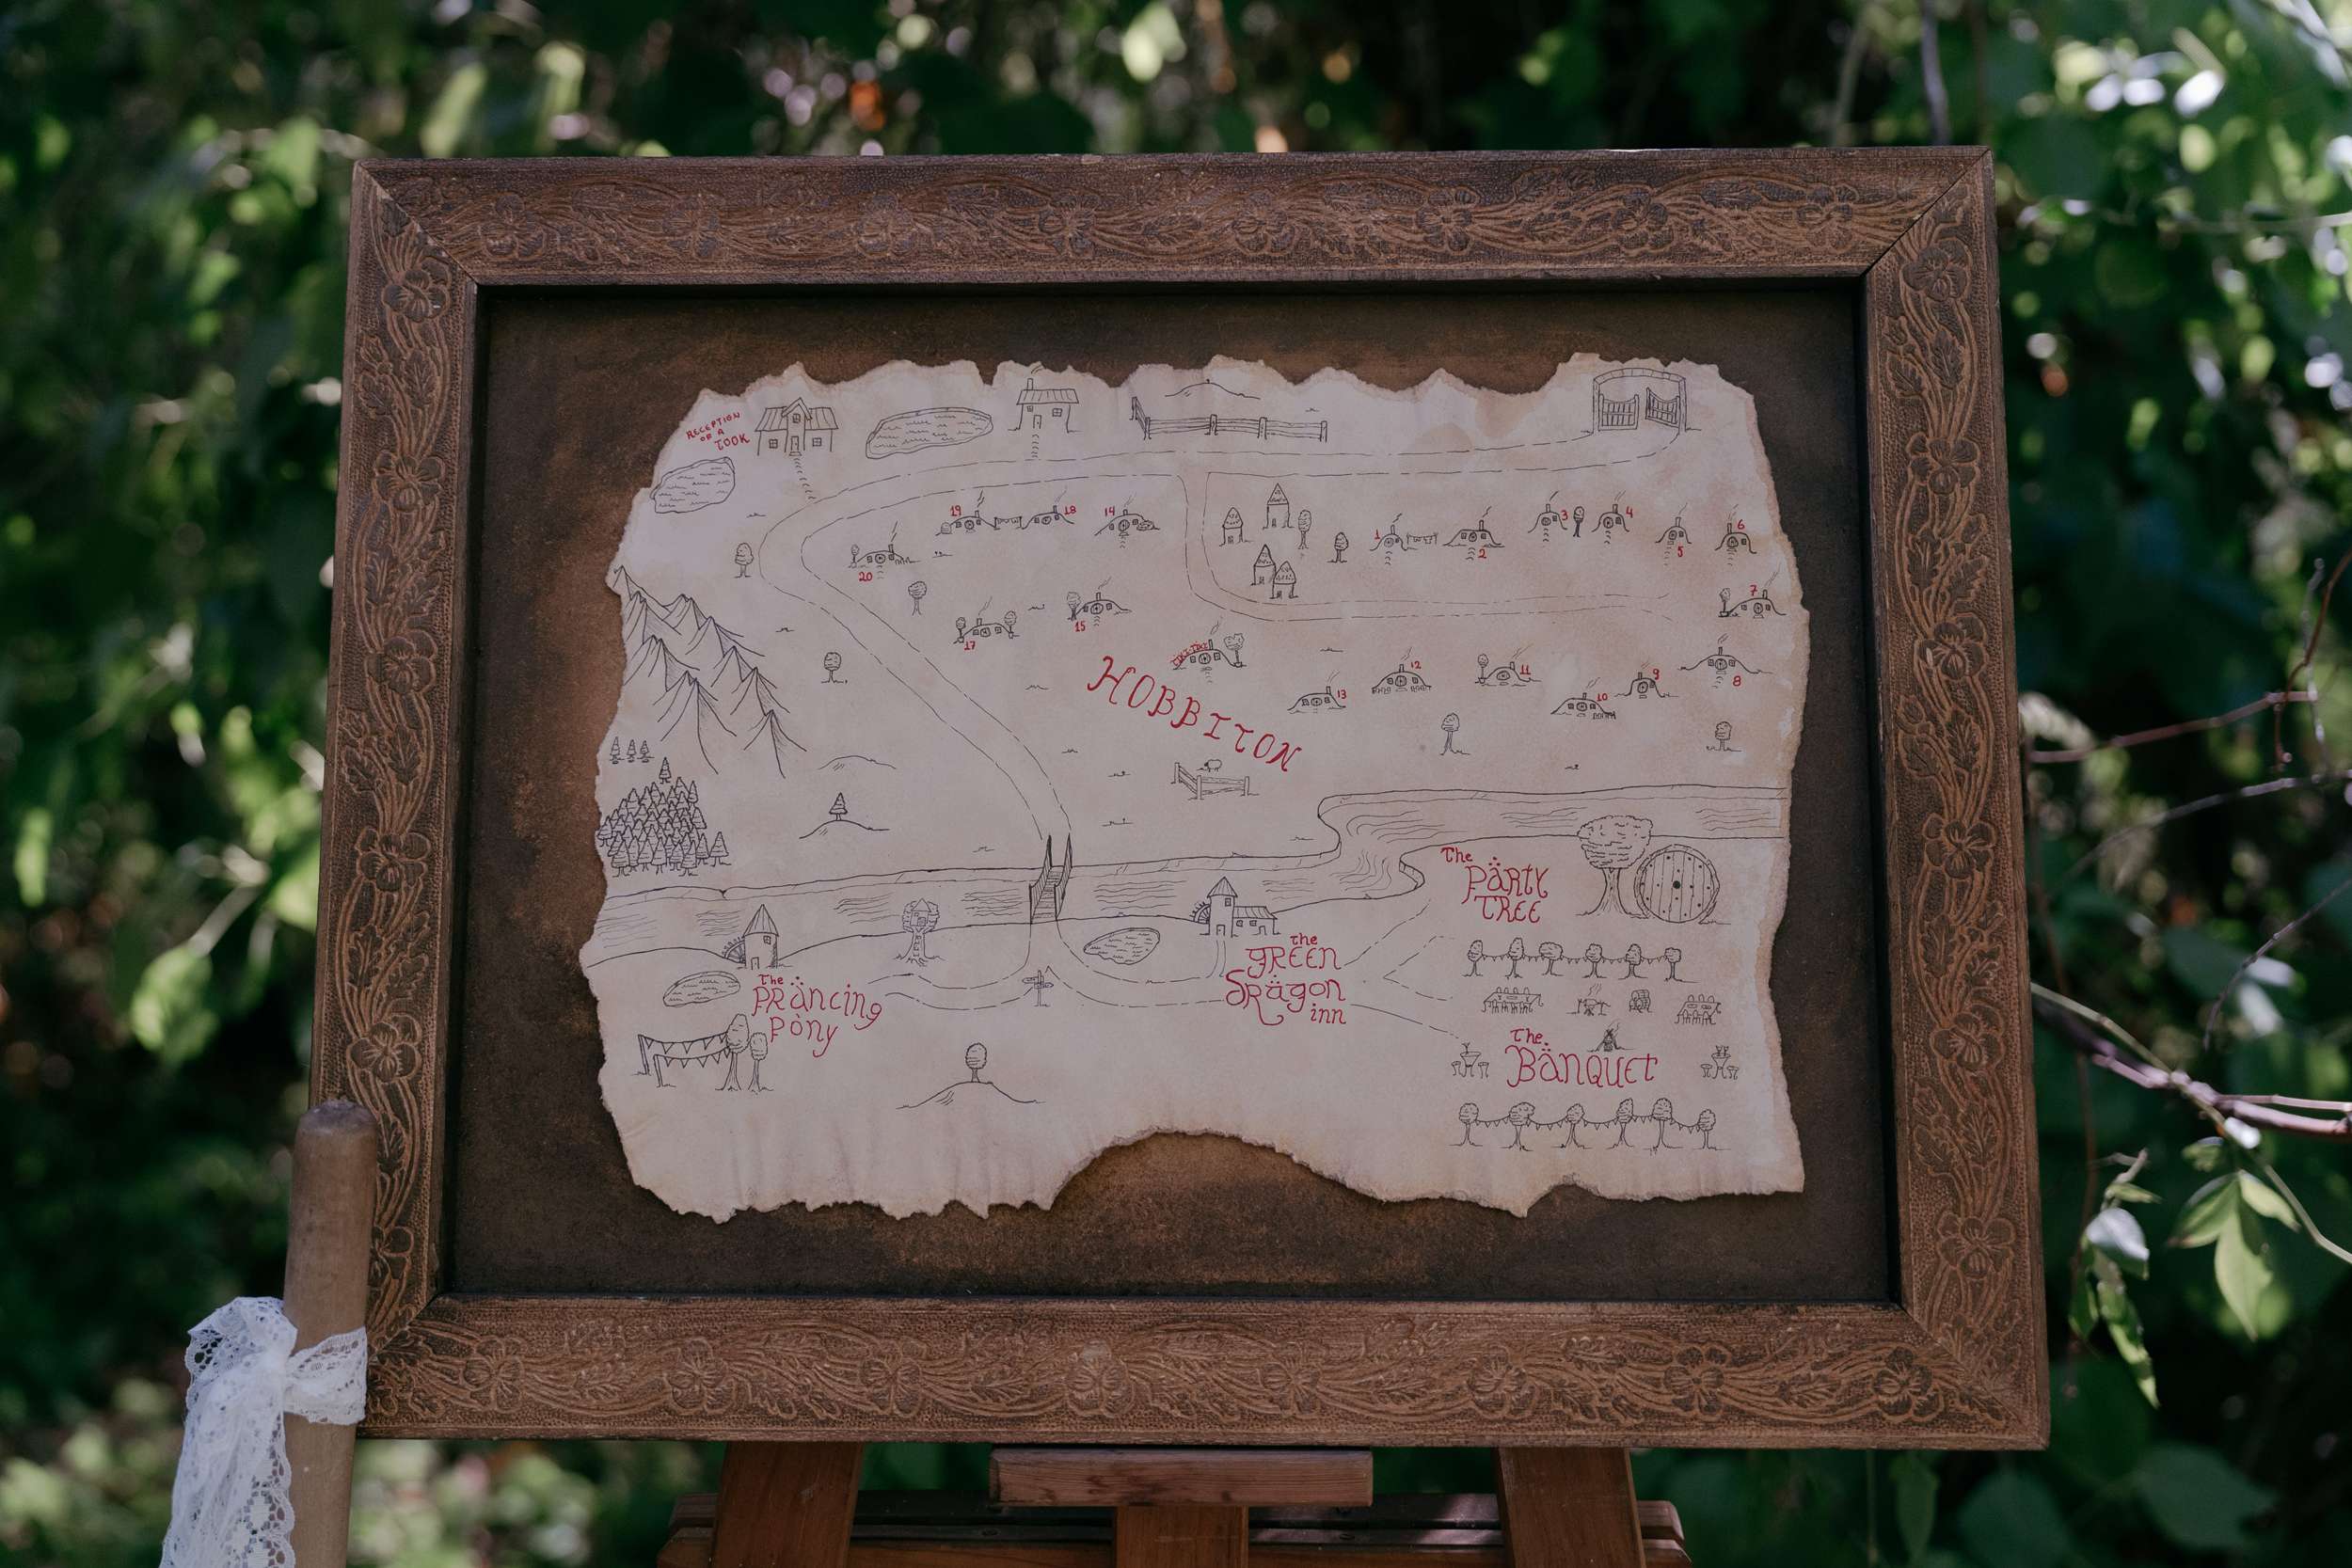 RECEPTION
OF A
TOOK
19
18
14
1
2
3
4
5
6
20
7
17
15
HOBBITON
13
12
11
10
9
8
The
PÄRTY
TREE
The
PRäncing
Pony
the
GREEN
DRägon
inn
The
BäNQUET